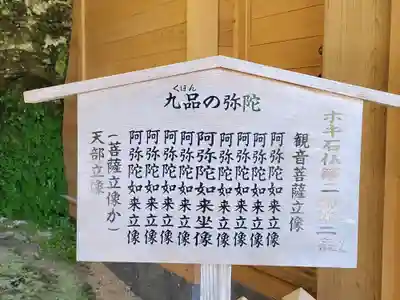 くほん
九品の弥陀
ホキ石仏第二群
観音菩薩立像
阿弥陀如来立像
阿弥陀如来立像
阿弥陀如来立像
阿弥陀如来立像
阿弥陀如来坐像
阿弥陀如来立像
阿弥陀如来立像
阿弥陀如来立像
阿弥陀如来立像
(菩薩立像か)
天部立像